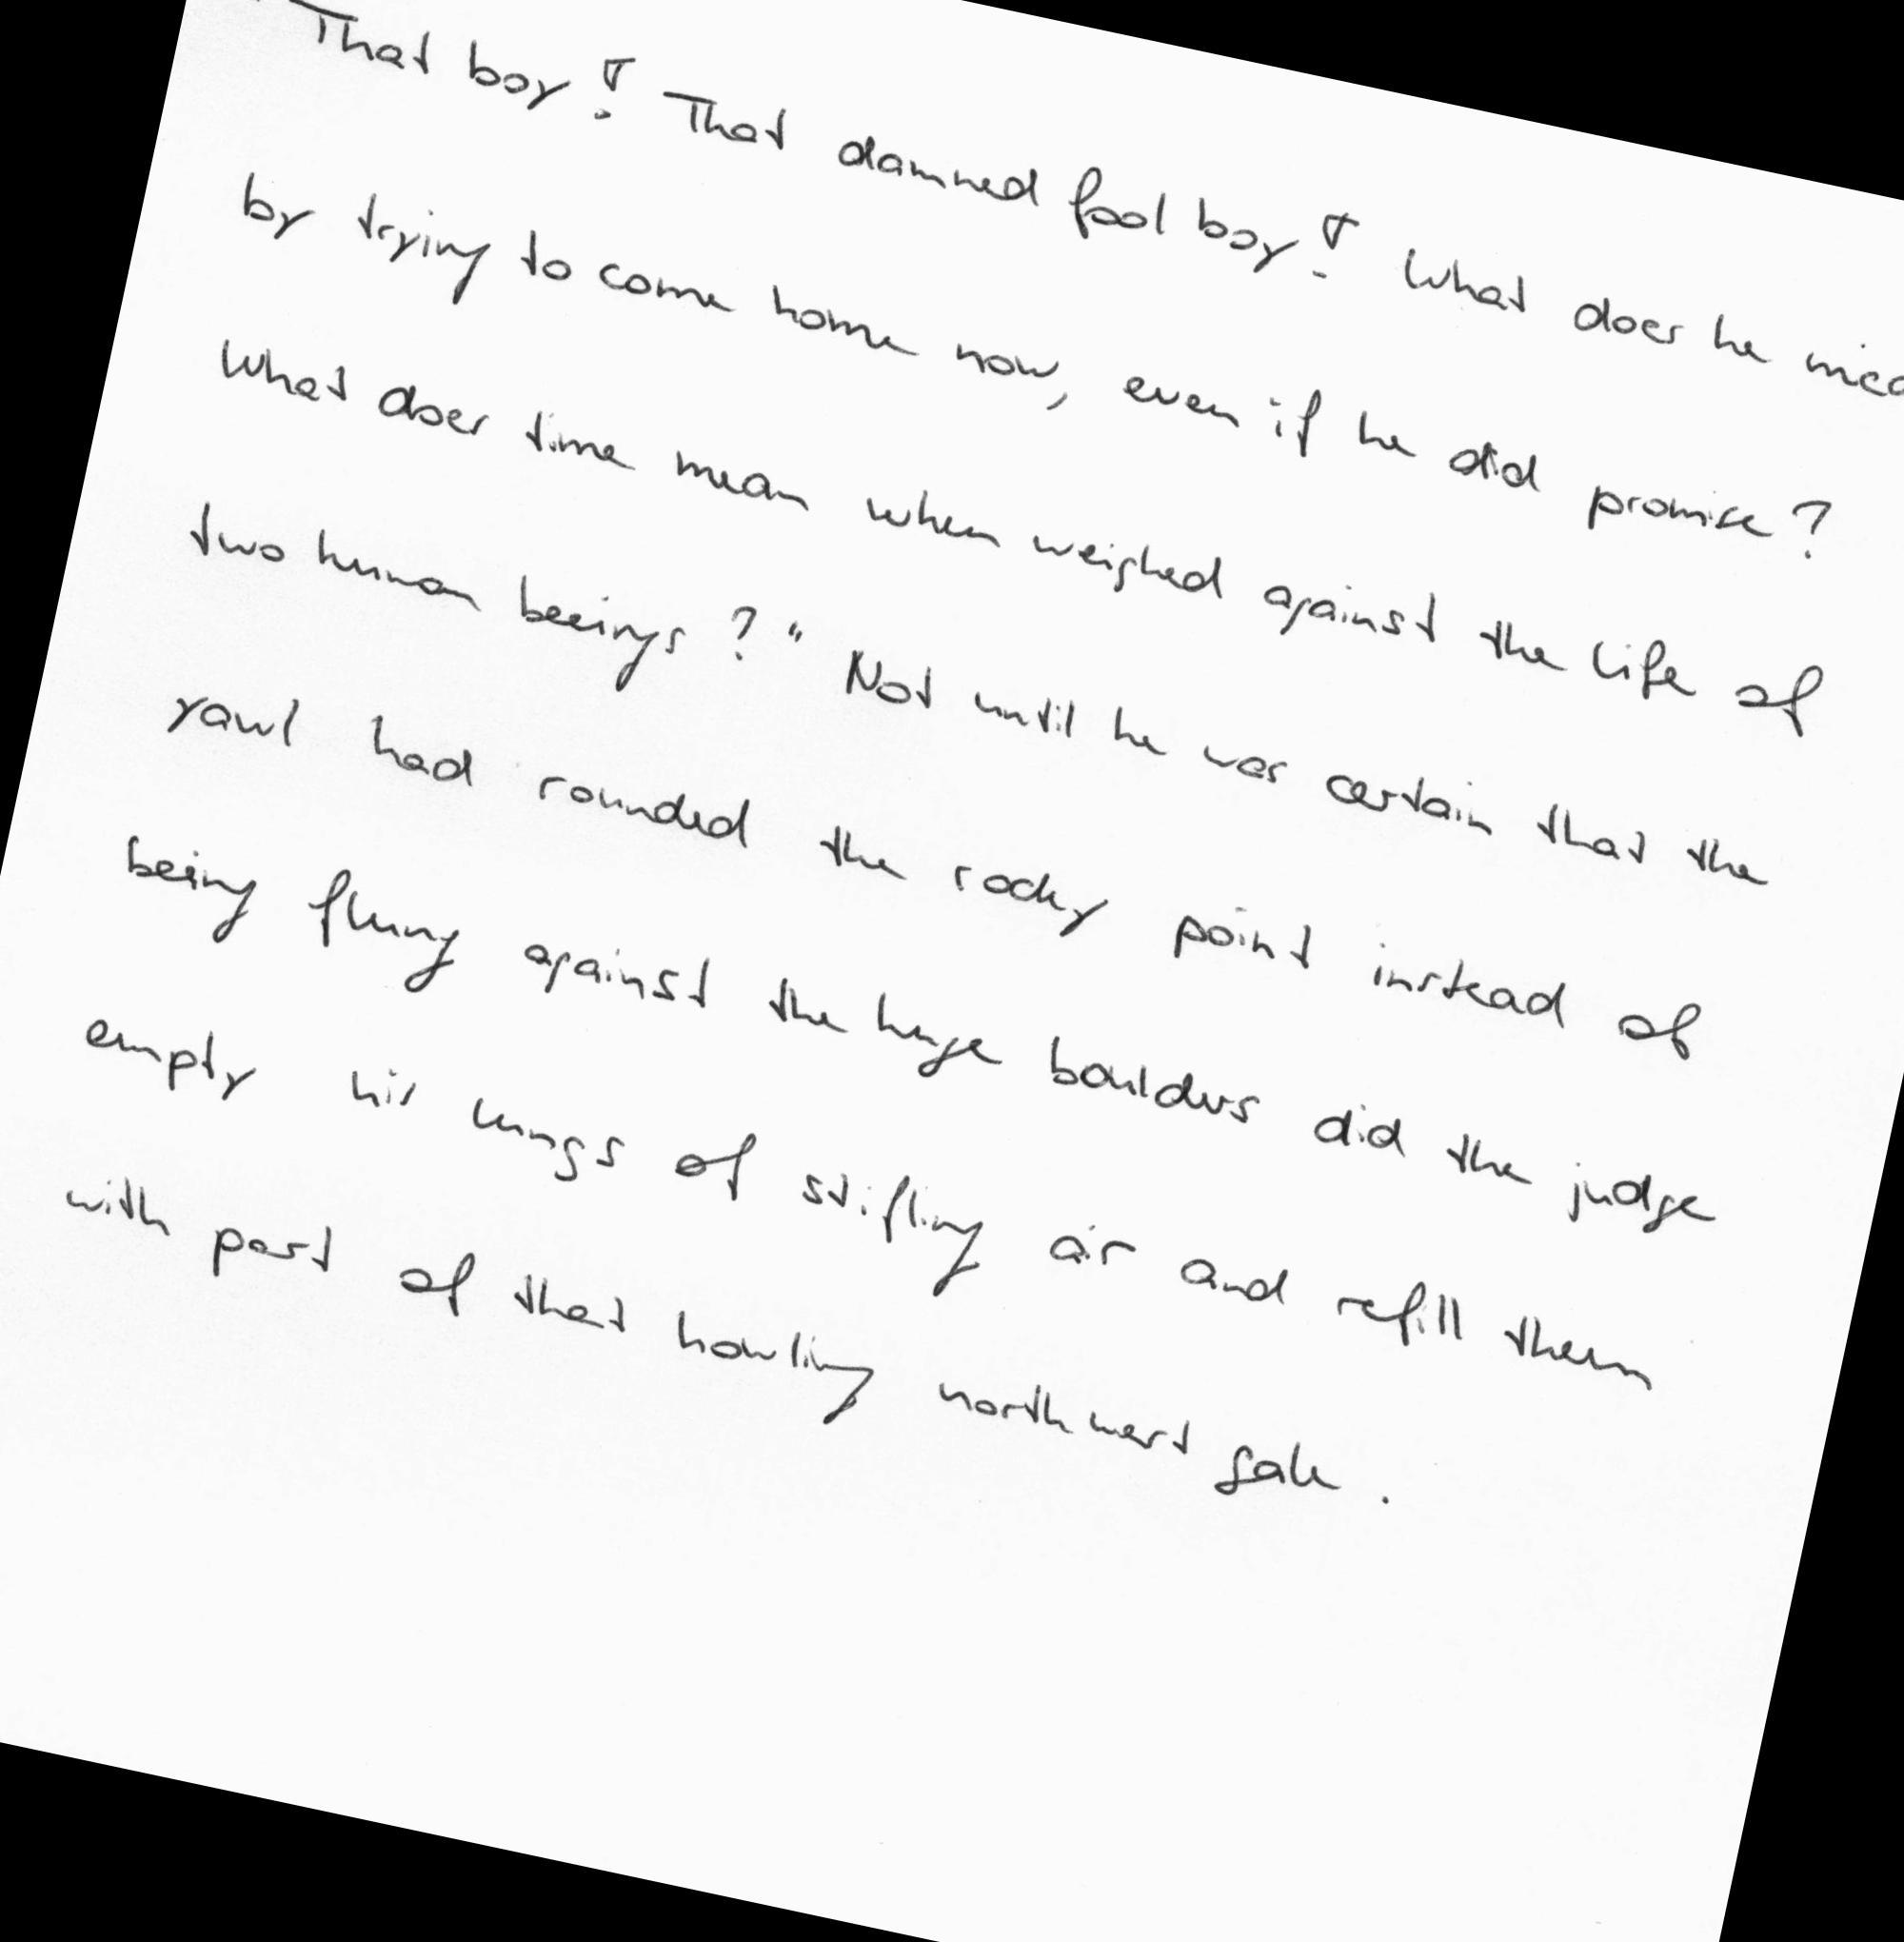 That boy! That damned fool boy! What does he mea
by trying to come home now, even if he did promise?
What does time mean when weighed against the life of
two human beeings?" Not until he was certain that the
yawl had rounded the rocky point instead of
being flung against the huge boulders did the judge
empty his lungs of stifling air and refill them
with part of that howling northwest gale.